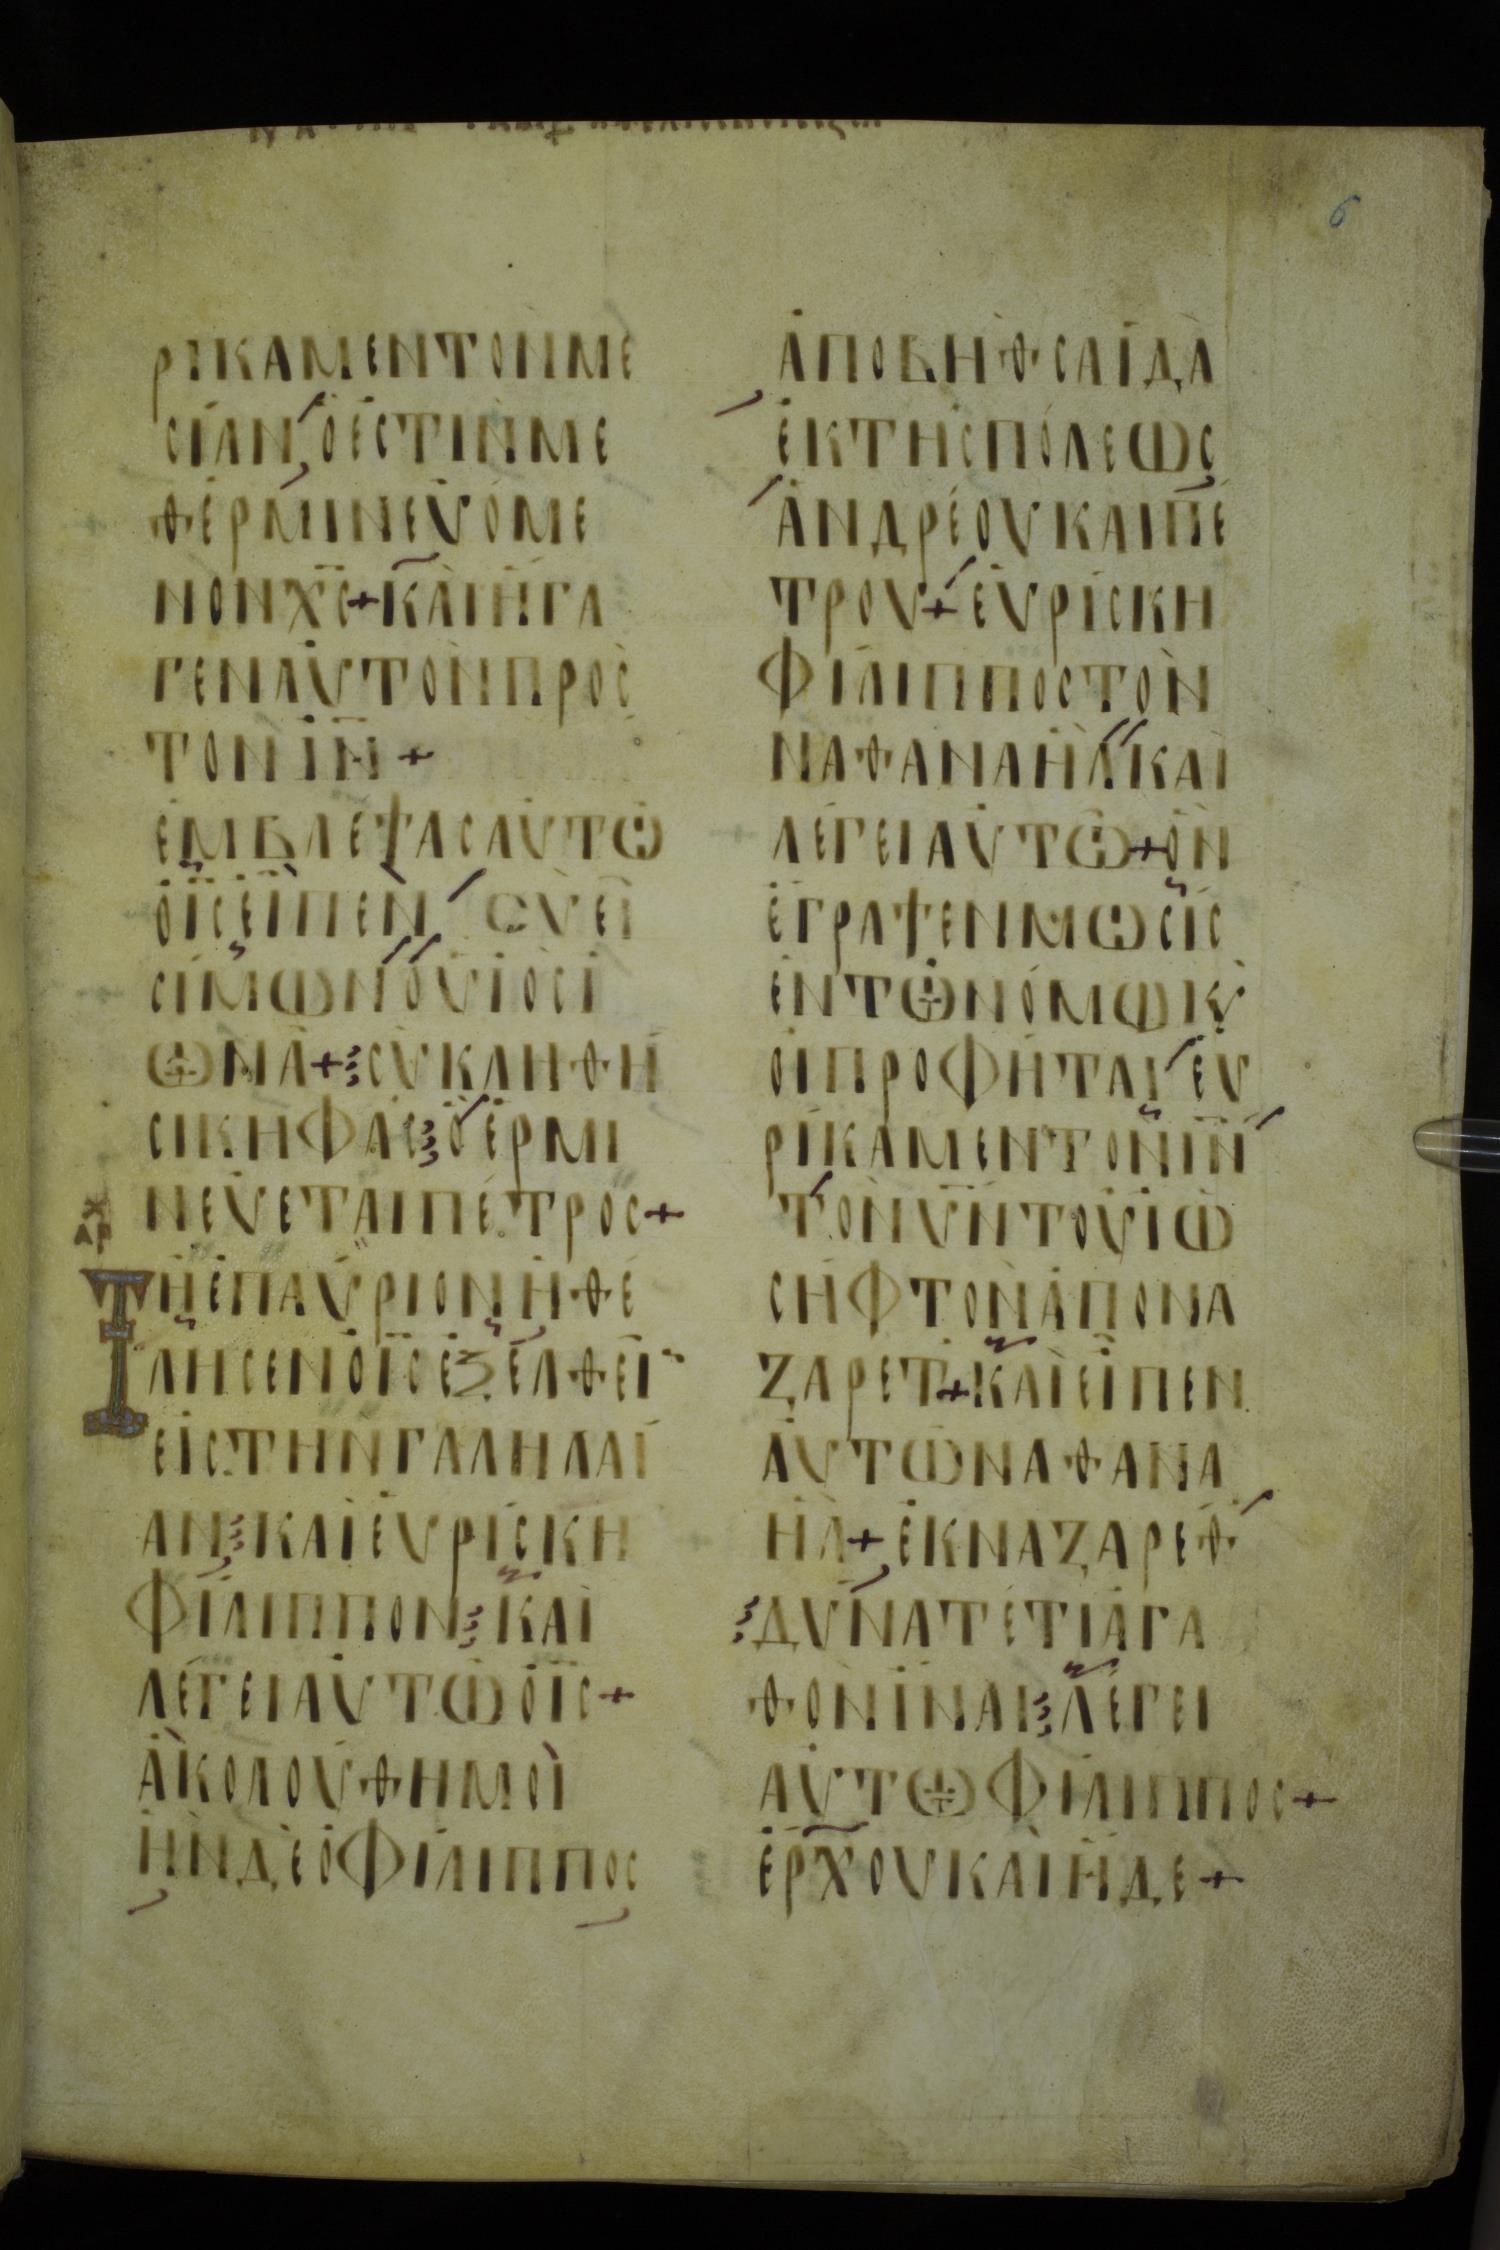 6
ΡΙΚΑΜΕΝΤΟΝΜΕ
CΙΑΝΟΕCΤΙΝΜΕ
ΘΕΡΜΙΝΕΥΟΜΕ
ΝΟΝΧC+ΚΑΙΗΓΑ
ΓΕΝΑΥΤΟΝΠΡΟC
ΤΟΝΙΝ+
ΕΜΒΛΕΨΑCΑΥΤΩ
ΟΙCΕΙΠΕΝ CΥΕΙ
CΙΜΩΝΟΥΙΟCΙ
ΩΝΑ+CΥΚΛΗΘΗ
CΙΚΗΦΑCΟΕΡΜΙ
ΝΕΥΕΤΑΙΠΕΤΡΟC+
ΑΡΧ
ΤΗΕΠΑΥΡΙΟΝΗΘΕ
ΛΗCΕΝΟΙCΕΞΕΛΘΕΙ
ΕΙCΤΗΝΓΑΛΗΛΑΙ
ΑΝΚΑΙΕΥΡΙCΚΗ
ΦΙΛΙΠΠΟΝΚΑΙ
ΛΕΓΕΙΑΥΤΩΟΙC+
ΑΚΟΛΟΥΘΗΜΟΙ
ΗΝΔΕΟΦΙΛΙΠΠΟC
ΑΠΟΒΗΘCΑΙΔΑ
ΕΚΤΗCΠΟΛΕΩC
ΑΝΔΡΕΟΥΚΑΙΠΕ
ΤΡΟΥ+ΕΥΡΙCΚΗ
ΦΙΛΙΠΠΟCΤΟΝ
ΝΑΘΑΝΑΗΛΚΑΙ
ΛΕΓΕΙΑΥΤΩ+ΟΝ
ΕΓΡΑΨΕΝΜΩCΙC
ΕΝΤΩΝΟΜΩΚ
ΟΙΠΡΟΦΗΤΑΙΕΥ
ΡΙΚΑΜΕΝΤΟΝΙΝ
ΤΟΝΥΝΤΟΥΙΩ
CΗΦΤΟΝΑΠΟΝΑ
ΖΑΡΕΤ+ΚΑΙΕΙΠΕΝ
ΑΥΤΩΝΑΘΑΝΑ
ΗΛ+ΕΚΝΑΖΑΡΕΘ
ΔΥΝΑΤΕΤΙΑΓΑ
ΘΟΝΙΝΑΙΛΕΓΕΙ
ΑΥΤΩΦΙΛΙΠΠΟC+
ΕΡΧΟΥΚΑΙΗΔΕ+